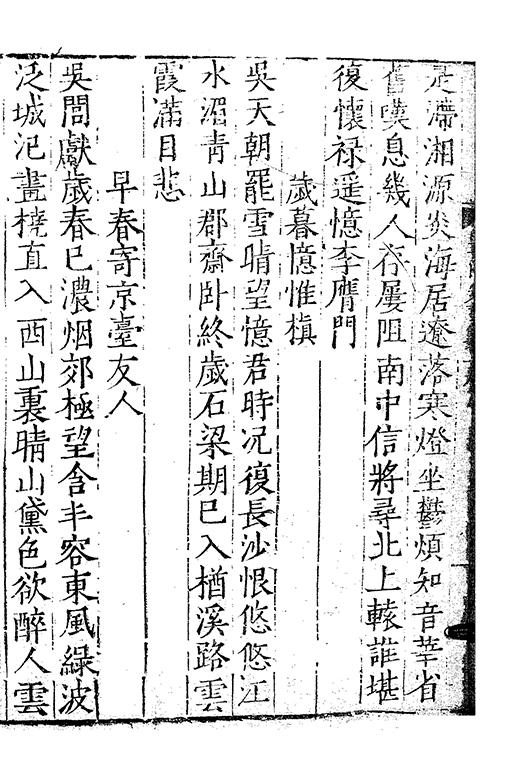 是滯湘源炎海居遼落寒燈坐鬱煩知音華省
舊嘆息幾人存屢阻南中信將尋北上轅誰堪
復懷祿遥憶李膺門
歲暮憶惟槙
吳天朝罷雪晴望憶君時况復長沙恨悠悠江
水湄青山郡齋卧終歲石梁期已入楢溪路雲
霞滿目悲
早春寄京臺友人
吳閶獻歲春已濃烟郊極望含丰容東風緑波
泛城汜畫橈直入西山裏晴山黛色欲醉人雲